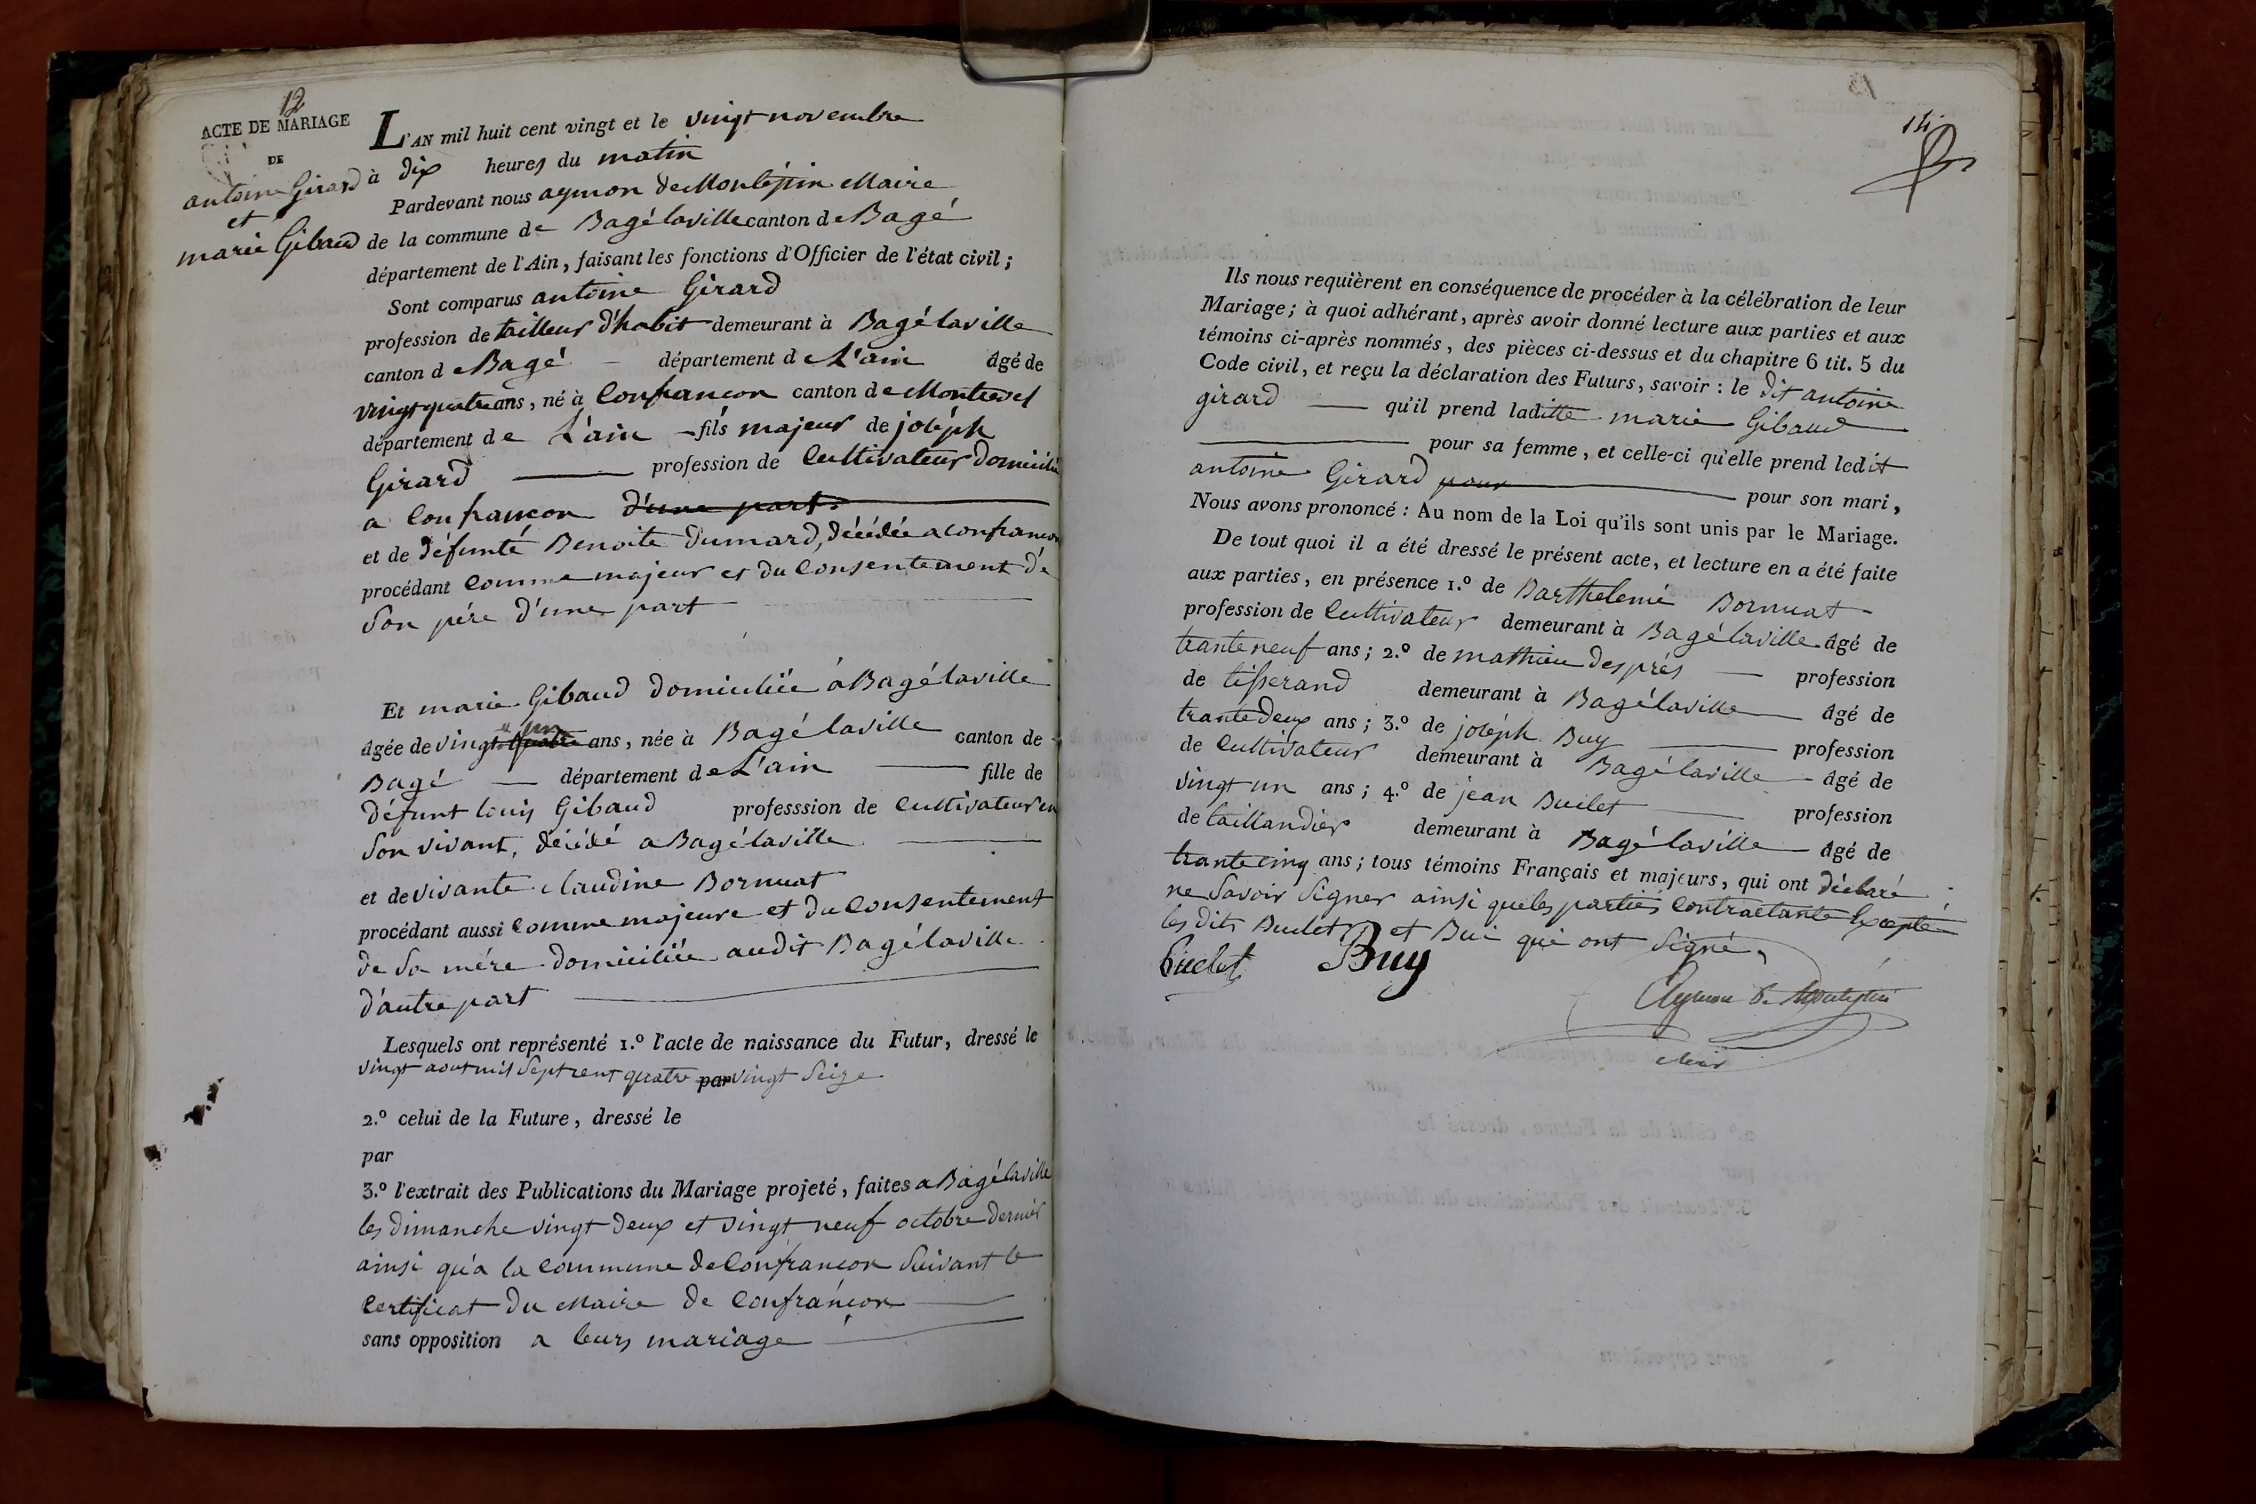 12
ACTE DE MARIAGE
DE
antoine Girard
et
marie Gibaud
L'AN mil huit cent vingt et le vingt novembre
à dix heures du matin
Pardevant nous aymon de Montépin Maire
de la commune de Bagélaville canton de Bagé
département de l'Ain, faisant les fonctions d'Officier de l'état civil;
Sont comparus antoine Girard
profession de tailleur d'habit demeurant à Bagélaville
canton de Bagé département de L'ain âgé de
vingt quatre ans, né à Confrancon canton de Montrevel
département de L'ain fils majeur de joséph
Girard profession de Cultivateur domicilié
a Confrancon d'une part
et de défunte Benoite Dumard, décédée a confrancon
procédant Comme majeur et du Consentement de
Son pére d'une part
Et marie Gibaud domiciliée à Bagélaville
âgée de vingt quatre un ans, née à Bagélaville canton de
Bagé département de L'ain fille de
défunt louis Gibaud professsion de Cultivateur en
Son vivant, décédé a Bagélaville
et de vivante Claudine Bornuat
procédant aussi Comme majeure et du Consentement
de Sa mére domiciliée audit Bagélaville
d'autre part
Lesquels ont représenté 1.º l'acte de naissance du Futur, dressé le
vingt aout mil Sept cent quatre par vingt Seize
2.º celui de la Future, dressé le
par
3.º l'extrait des Publications du Mariage projeté, faites a Bagélaville
les dimanche vingt deux et vingt neuf octobre dernier
ainsi qu'a la Commune de Confrancon Suivant le
Certificat du Maire de Confrancon
sans opposition a leurs mariage
14
Ils nous requièrent en conséquence de procéder à la célébration de leur
Mariage; à quoi adhérant, après avoir donné lecture aux parties et aux
témoins ci-après nommés, des pièces ci-dessus et du chapitre 6 tit. 5 du
Code civil, et reçu la déclaration des Futurs, savoir: le dit antoine
girard qu'il prend laditte marie Gibaud
pour sa femme, et celle-ci qu'elle prend ledit
antoine Girard pour pour son mari,
Nous avons prononcé: Au nom de la Loi qu'ils sont unis par le Mariage.
De tout quoi il a été dressé le présent acte, et lecture en a été faite
aux parties, en présence 1.º de Barthelemé Bornuat
profession de Cultivateur demeurant à Bagélaville âgé de
trante neuf ans; 2.º de mathieu després profession
de tisserand demeurant à Bagélaville âgé de
trante deux ans; 3.º de joséph Buy profession
de Cultivateur demeurant à Bagélaville âgé de
vingt un ans; 4.º de jean Buclet profession
de taillandier demeurant à Bagélaville âgé de
trante cinq ans; tous témoins Français et majeurs, qui ont déclaré
ne Savoir Signer ainsi que les parties Contractante Excepté
les dits Buclet et Bui qui ont Signé
Buclet Buy
Aymon de Montépin
Maire